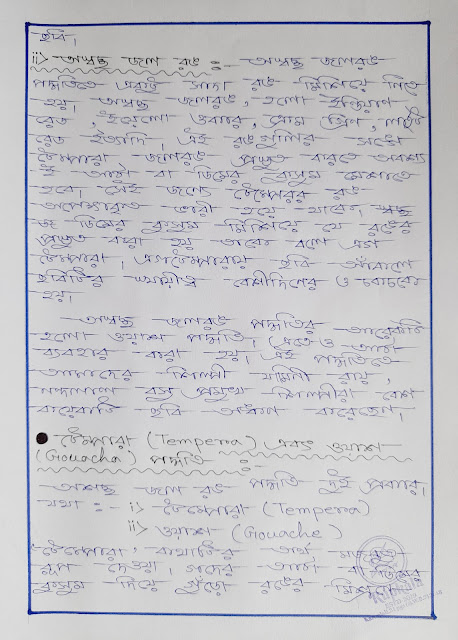 ছবি।
ii> অস্বচ্ছ জল রঙ :- অস্বচ্ছ জলরঙ
পদ্ধতিতে একটু সাদা রঙ মিশিয়ে নিতে
হয়। অস্বচ্ছ জলরঙ, হলো ইন্ডিয়ান
রেড, ইয়েলো ওকার, গ্রিন, লাইট
রেড ইত্যাদি। এই রঙগুলির সঙ্গে
টেম্পারা জলরঙ প্রস্তুত করতে অবশ্য
ই আঠা বা ডিমের কুসুম মেশাতে
হবে। সেই জন্যে টেম্পেরার রঙ
অপেক্ষাকৃত ভারী হয়ে থাকে। স্বচ্ছ
জ ডিমের কুসুম মিশিয়ে যে রঙের
প্রস্তুত করা হয় তাকে বলে এগ
টেম্পারা। এগটেম্পারায় ছবি আঁকলে
ছবিটির স্থায়ীত্ব বেশীদিনের ও চকচকে
হয়।
অস্বচ্ছ জলরঙ পদ্ধতির আরেকটি
হলো ওয়াশ পদ্ধতি। এতে ও আঠা
ব্যবহার করা হয়। এই পদ্ধতিতে
আমাদের শিল্পী যামিনী রায়,
নন্দলাল বসু প্রমুখ শিল্পীরা বেশ
কয়েকটি ছবি অঙ্কণ করেছেন।
● টেম্পারা (Tempera) এবং ওয়াশ
(Gouache) পদ্ধতি :-
অস্বচ্ছ জল রঙ পদ্ধতি দুই প্রকার।
যথা :- i> টেম্পারা (Tempera)
ii> ওয়াশ (Gouache)
টেম্পারা, কথাটির অর্থ মজবুত
রূপ দেওয়া। গদের আঠা বা ডিমের
কুসুম দিয়ে গুঁড়ো রঙের মিশ্রণ